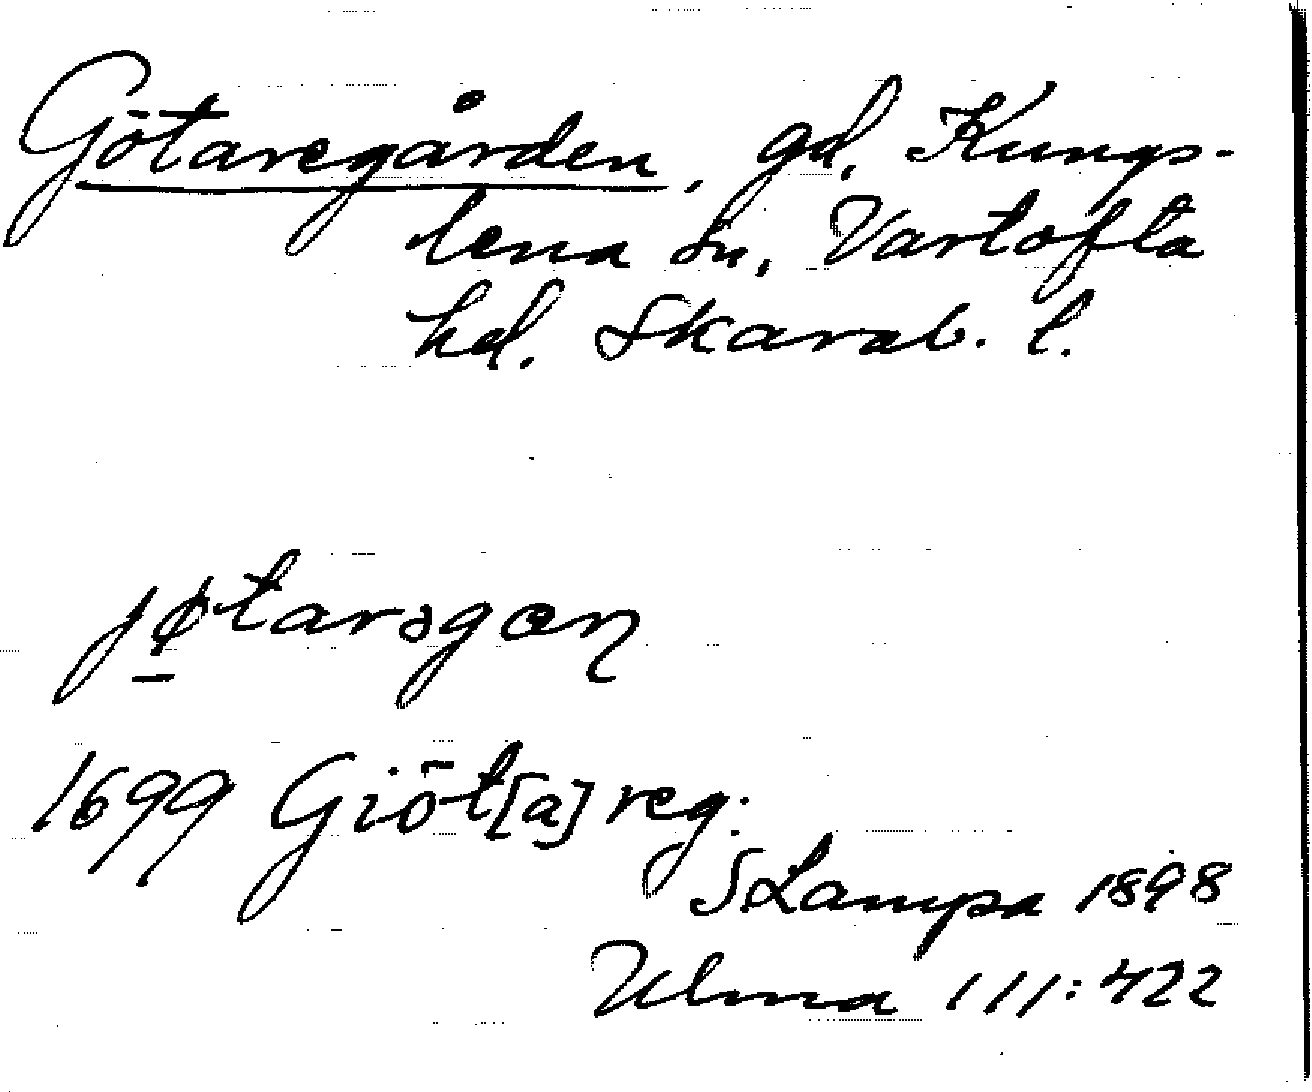 Götaregården, gd, Kungs-
lena sn, Vartofta
hd. Skarab. l.
jøtarəgaɳ
1699 Giöt[a]reg:
S Lampa 1898
Ulma 111:422